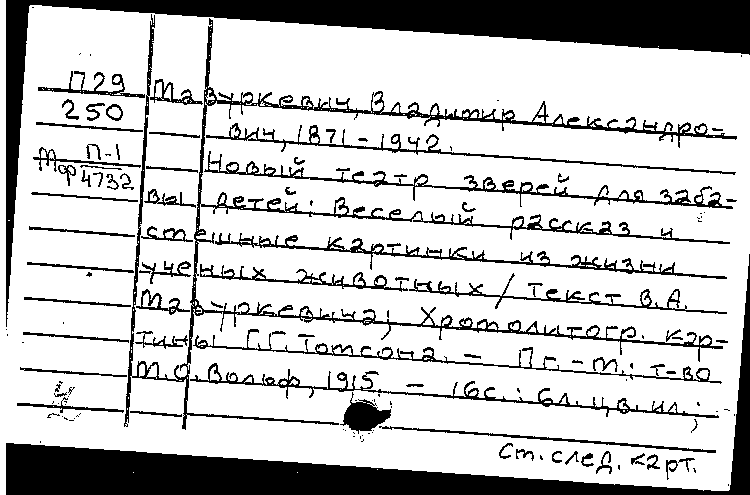 П29
250
П-1
Мор 4732
Мазуркевич, Владимир Александро-
вич, 1871-1942.
Новый театр зверей для заба-
вы детей: Веселый рассказ и
смешные картинки из жизни
ученых животных / Текст В.А.
Мазуркевича; Хромолитогр. кар-
тины Г.Г. Томсона. - Пг.-М.: т-во
М.О. Вольф, 1915. - 16с.: 6л. цв. ил.;
4
Ст. след. карт.